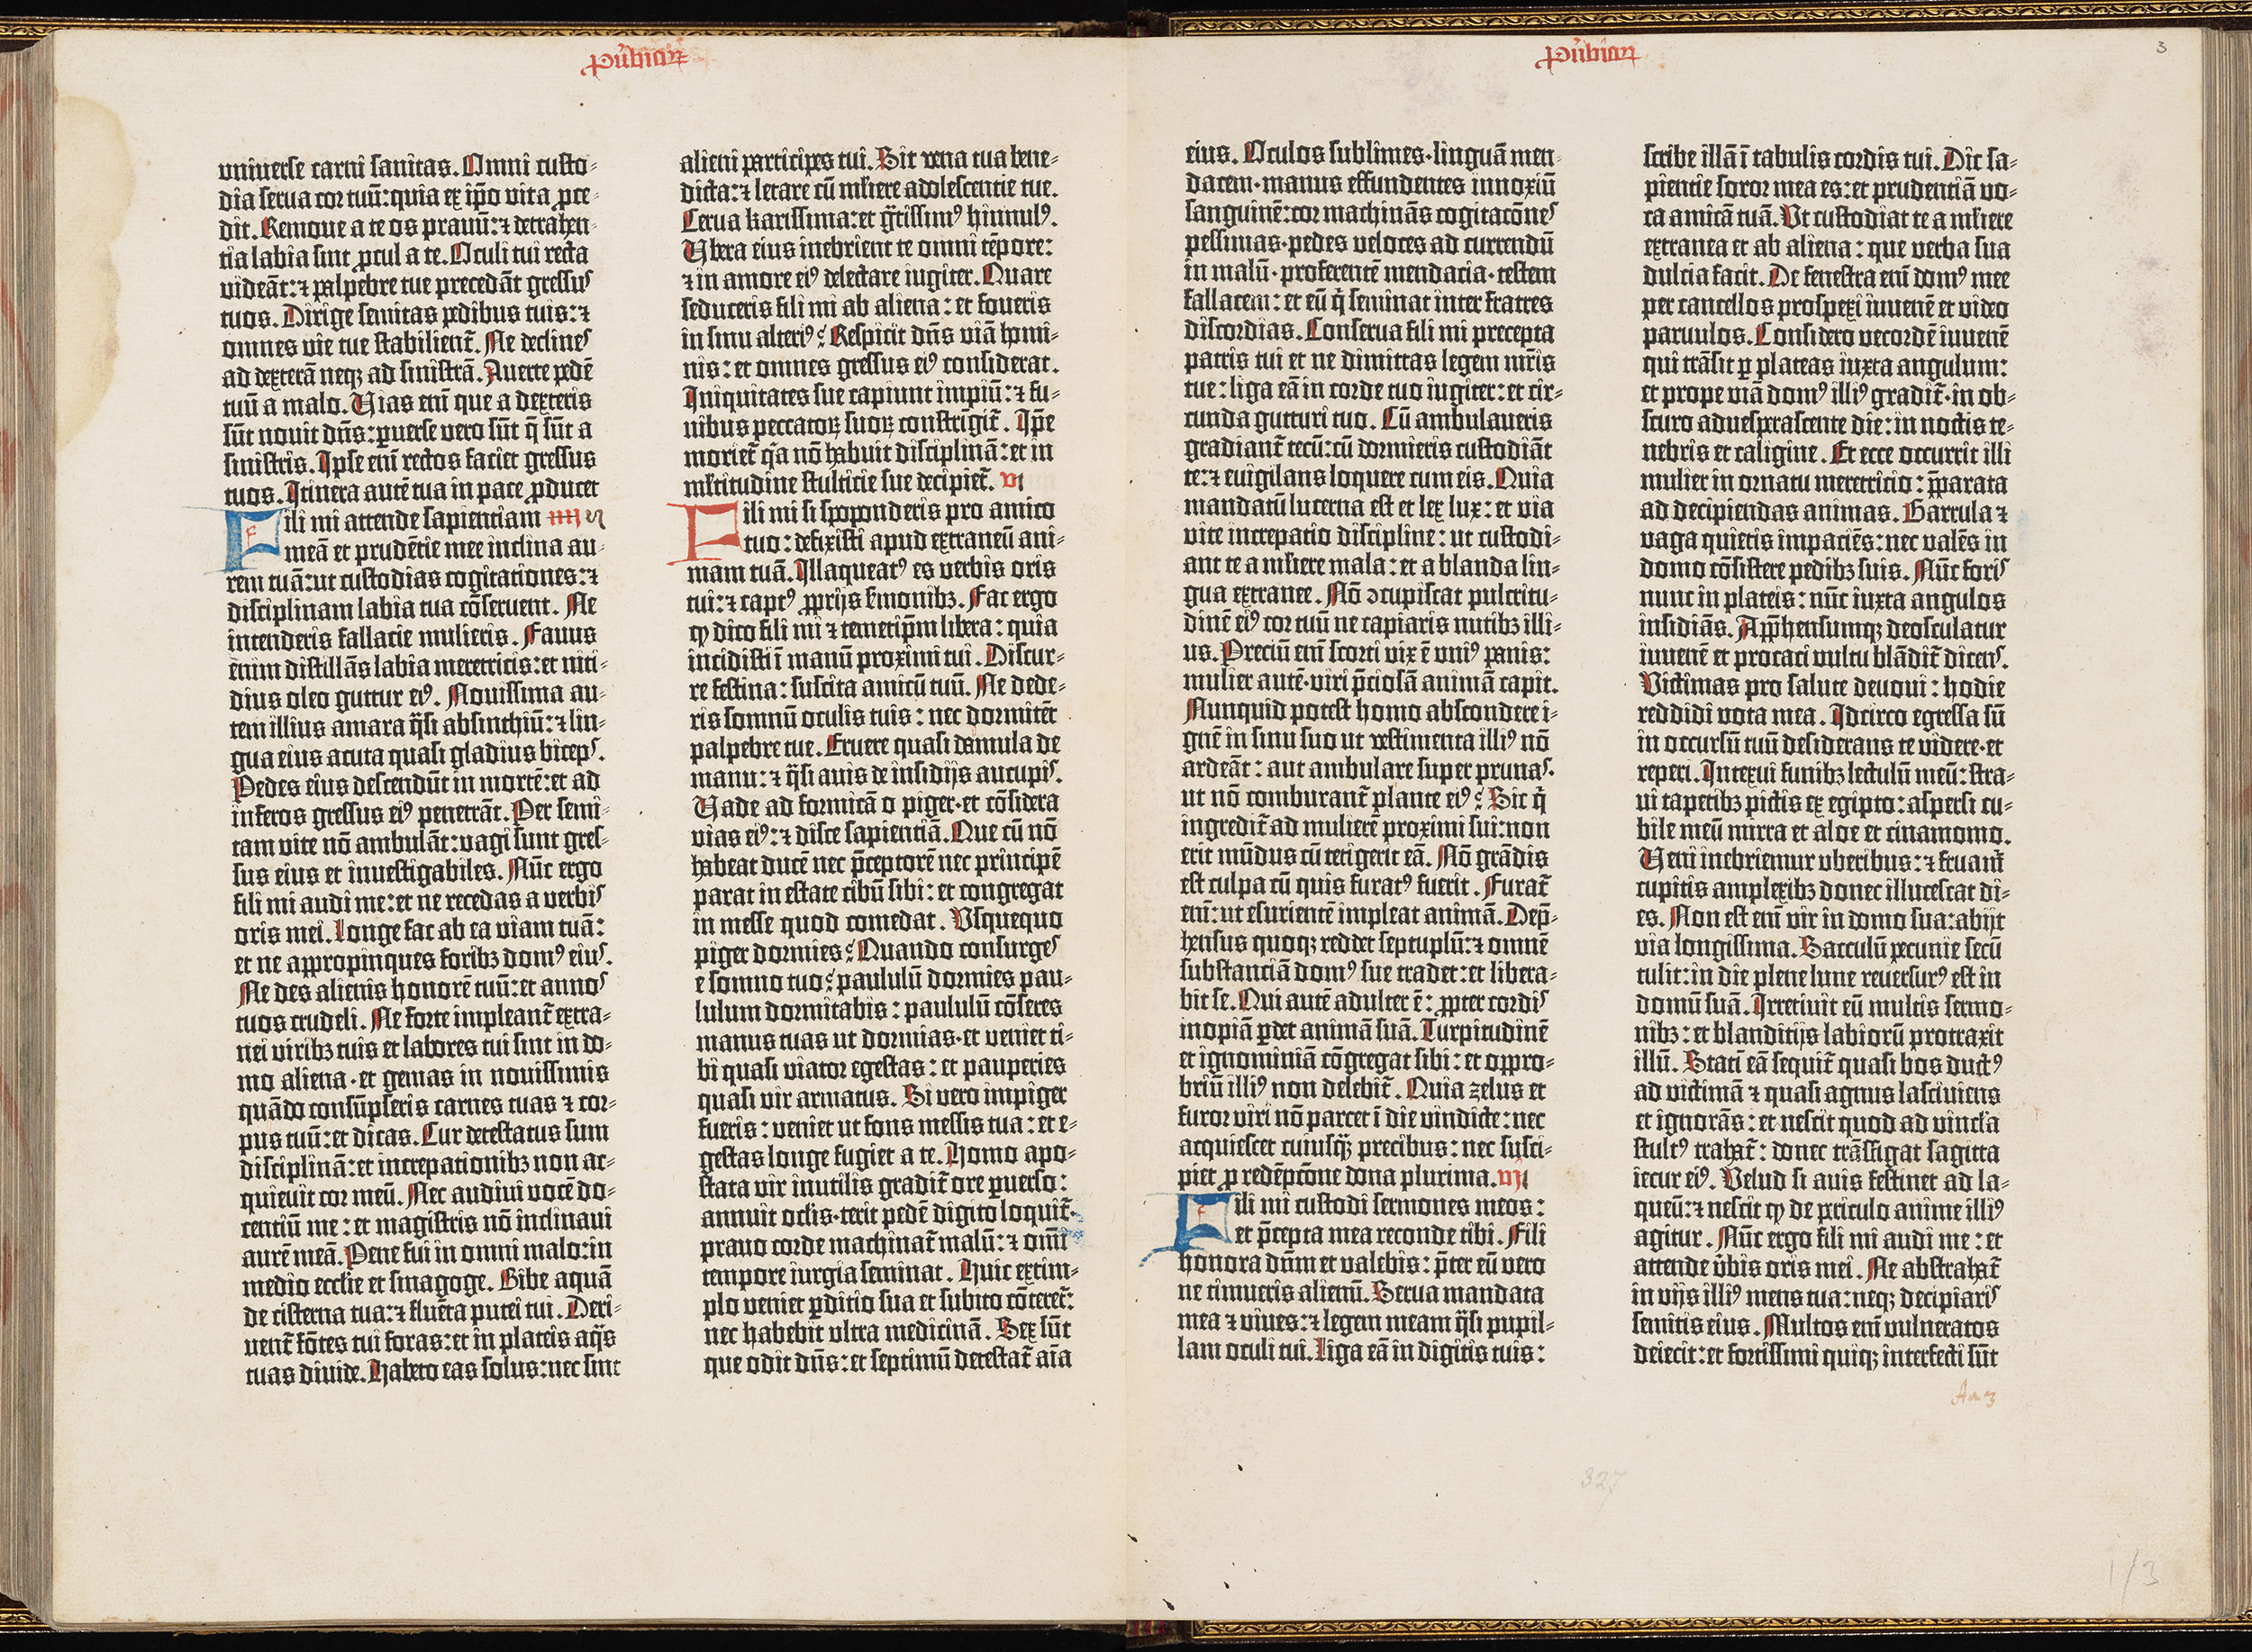 ꝓũbioꝝ
vniuerſe carni ſanitas. Omni cuſto-
dia ſerua cor tuū: quia ex ip̄o vita ꝓce-
dit. Remoue a te os prauū: ⁊ detrahen-
tia labia ſint ꝓcul a te. Oculi tui recta
videāt: ⁊ palpebre tue precedāt greſſus
tuos. Dirige ſemitas pedibus tuis: ⁊
omnes vie tue ſtabilient̄. Ne declines
ad dexterā neqꝫ ad ſiniſtrā. Auerte pedē
tuū a malo. Vias enī que a dexteris
ſūt nouit dn̄s: ꝑuerſe vero ſūt q̄ ſūt a
ſiniſtris. Ipſe enī rectos faciet greſſus
tuos. Itinera autē tua in pace ꝓducet
Fili mi attende ſapientiam
meā et prudētie mee inclina au-
rem tuā: ut cuſtodias cogitationes: ⁊
diſciplinam labia tua cōſeruent. Ne
intenderis fallacie mulieris. Fauus
enim diſtillās labia meretricis: et niti-
dius oleo guttur eiꝰ. Nouiſſima au-
tem illius amara q̄ſi abſinthiū: ⁊ lin-
gua eius acuta quaſi gladius biceps.
Pedes eius deſcendūt in mortē: et ad
inferos greſſus eiꝰ penetrāt. Per ſemi-
tam vite nō ambulāt: vagi ſunt greſ-
ſus eius et inueſtigabiles. Nūc ergo
fili mi audi me: et ne recedas a verbis
oris mei. Longe fac ab ea viam tuā:
et ne appropinques foribꝫ domꝰ eius.
Ne des alienis honorē tuū: et annos
tuos crudeli. Ne forte impleant̄ extra-
nei viribꝫ tuis et labores tui ſint in do-
mo aliena · et gemas in nouiſſimis
quādo conſūpſeris carnes tuas ⁊ cor-
pus tuū: et dicas. Cur deteſtatus ſum
diſciplinā: et increpationibꝫ non ac-
quieuit cor meū. Nec audiui vocē do-
centiū me: et magiſtris nō inclinaui
aurē meā. Pene fui in omni malo: in
medio eccl̄ie et ſinagoge. Bibe aquā
de ciſterna tua: ⁊ fluēta putei tui. Deri-
uent̄ fōtes tui foras: et in plateis aq̄s
tuas diuide. Habeto eas ſolus: nec ſint
alieni participes tui. Sit vena tua bene-
dicta: ⁊ letare cū ml̄iere adoleſcentie tue.
Cerua kariſſima: et gͣtiſſimꝰ hinnulꝰ.
Vbera eius inebrient te omni tēpore:
⁊ in amore eiꝰ delectare iugiter. Quare
ſeduceris fili mi ab aliena: et foueris
in ſinu alteriꝰ? Reſpicit dn̄s viā homi-
nis: et omnes greſſus eiꝰ conſiderat.
Iniquitates ſue capiunt impiū: ⁊ fu-
nibus peccatoꝝ ſuoꝝ conſtrīgit̄. Ip̄e
moriet̄ q̄a nō habuit diſciplinā: et in
ml̄titudine ſtulticie ſue decipiet̄. vi
Fili mi ſi ſpoponderis pro amico
tuo: defixiſti apud extraneū ani-
mam tuā. Illaqueatꝰ es verbis oris
tui: ⁊ captꝰ ꝓprijs ẜmonibꝫ. Fac ergo
qͦ dico fili mi ⁊ temetip̄m libera: quia
incidiſti ī manū proximi tui. Diſcur-
re feſtina: ſuſcita amicū tuū. Ne dede-
ris ſomnū oculis tuis: nec dormitēt
palpebre tue. Eruere quaſi damula de
manu: ⁊ q̄ſi auis de inſidijs aucupis.
Vade ad formicā o piger · et cōſidera
vias eiꝰ: ⁊ diſce ſapientiā. Que cū nō
habeat ducē nec p̄ceptorē nec principē
parat in eſtate cibū ſibi: et congregat
in meſſe quod comedat. Vſquequo
piger dormies? Quando conſurges
e ſomno tuo? paululū dormies pau-
lulum dormitabis: paululū cōſeres
manus tuas ut dormias · et veniet ti-
bi quaſi viator egeſtas: et pauperies
quaſi vir armatus. Si vero impiger
fueris: veniet ut fons meſſis tua: et e-
geſtas longe fugiet a te. Homo apo-
ſtata vir inutilis gradit̄ ore ꝑuerſo:
annuit oclis · terit pedē digito loquit̄.
prauo corde machinat̄ malū: ⁊ omī
tempore iurgia ſeminat. Huic extim-
plo veniet ꝑditio ſua et ſubito cōteret̄:
nec habebit vltra medicinā. Sex ſūt
que odit dn̄s: et ſeptimū deteſtat̄ aīa
ꝓũbioꝝ
3
eius. Oculos ſublimes · linguā men-
dacem · manus effundentes innoxiū
ſanguinē: cor machinās cogitacōnes
peſſimas · pedes veloces ad currendū
in malū · proferentē mendacia · teſtem
fallacem: et eū q̄ ſeminat inter fratres
diſcordias. Conſerua fili mi precepta
patris tui et ne dimittas legem mr̄is
tue: liga eā in corde tuo iugiter: et cir-
cunda gutturi tuo. Cū ambulaueris
gradiant̄ tecū: cū dormieris cuſtodiāt
te: ⁊ euigilans loquere cum eis. Quia
mandatū lucerna eſt et lex lux: et via
vite increpatio diſcipline: ut cuſtodi-
ant te a ml̄iere mala: et a blanda lin-
gua extranee. Nō ꝯcupiſcat pulcritu-
dinē eiꝰ cor tuū ne capiaris nutibꝫ illi-
us. Preciū enī ſcorti vix ē vniꝰ panis:
mulier autē · viri p̄cioſā animā capit.
Nunquid poteſt homo abſcondere i-
gnē in ſinu ſuo ut veſtimenta illiꝰ nō
ardeāt: aut ambulare ſuper prunas ·
ut nō comburant̄ plante eiꝰ? Sic q̄
ingredit̄ ad mulierē proximi ſui: non
erit mūdus cū tetigerit eā. Nō grādis
eſt culpa cū quis furatꝰ fuerit. Furat̄
enī: ut eſurientē impleat animā. Dep̄-
henſus quoqꝫ reddet ſeptuplū: ⁊ omnē
ſubſtanciā domꝰ ſue tradet: et libera-
bit ſe. Qui autē adulter ē: ꝓpter cordis
inopiā ꝑdet animā ſuā. Turpitudinē
et ignominiā cōgregat ſibi: et oppro-
briū illiꝰ non delebit̄. Quia zelus et
furor viri nō parcet ī die vindicte: nec
acquieſcet cuiuſq̄ꝫ precibus: nec ſuſci-
piet ꝓ redēpcōne dona plurima. vij
Fili mi cuſtodi ſermones meos:
et p̄cepta mea reconde tibi. Fili
honora dn̄m et valebis: p̄ter eū vero
ne timueris alienū. Serua mandata
mea ⁊ viues: ⁊ legem meam q̄ſi pupil-
lam oculi tui. Liga eā in digitis tuis:
ſcribe illā ī tabulis cordis tui. Dic ſa-
pientie ſoror mea es: et prudentiā vo-
ca amicā tuā. Vt cuſtodiat te a ml̄iere
extranea et ab aliena: que verba ſua
dulcia facit. De feneſtra enī domꝰ mee
per cancellos proſpexi iuuenē et video
paruulos. Conſidero vecordē iuuenē
qui trāſit ꝑ plateas iuxta angulum:
et prope viā domꝰ illiꝰ gradit̄ · in ob-
ſcuro aduesperaſcente die: in noctis te-
nebris et caligine. Et ecce occurrit illi
mulier in ornatu meretricio: p̄parata
ad decipiendas animas. Garrula ⁊
vaga quietis impaciēs: nec valēs in
domo cōſiſtere pedibꝫ ſuis. Nūc foris
nunc in plateis: nūc iuxta angulos
inſidiās. App̄henſumqꝫ deoſculatur
iuuenē et procaci vultu blādit̄ dicens.
Victimas pro ſalute deuoui: hodie
reddidi vota mea. Idcirco egreſſa ſū
in occurſū tuū deſiderans te videre · et
reperi. Intexui funibꝫ lectulū meū: ſtra-
ui tapetibꝫ pictis ex egipto: aſperſi cu-
bile meū mirra et aloe et cinamomo.
Veni inebriemur vberibus: ⁊ fruam̄
cupitis amplexibꝫ donec illuceſcat di-
es. Non eſt enī vir in domo ſua: abijt
via longiſſima. Sacculū pecunie ſecū
tulit: in die plene lune reuerſurꝰ eſt in
domū ſuā. Irretiuit eū multis ſermo-
nibꝫ: et blanditijs labiorū protraxit
illū. Statī eā ſequit̄ quaſi bos ductꝰ
ad victimā ⁊ quaſi agnus laſciuiens
et ignorās: et neſcit quod ad vincl̄a
ſtultꝰ trahat̄: donec trāſfigat ſagitta
iecur eiꝰ. Velud ſi auis feſtinet ad la-
queū: ⁊ neſcit qͦ de periculo anime illiꝰ
agitur. Nūc ergo fili mi audi me: et
attende v̄bis oris mei. Ne abſtrahat̄
in vijs illiꝰ mens tua: neqꝫ decipiaris
ſemitis eius. Multos enī vulneratos
deiecit: et fortiſſimi quiqꝫ interfecti ſūt
327
1/3